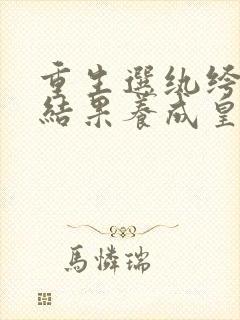 重生選紈絝
結果養成皇
馬憐瑞